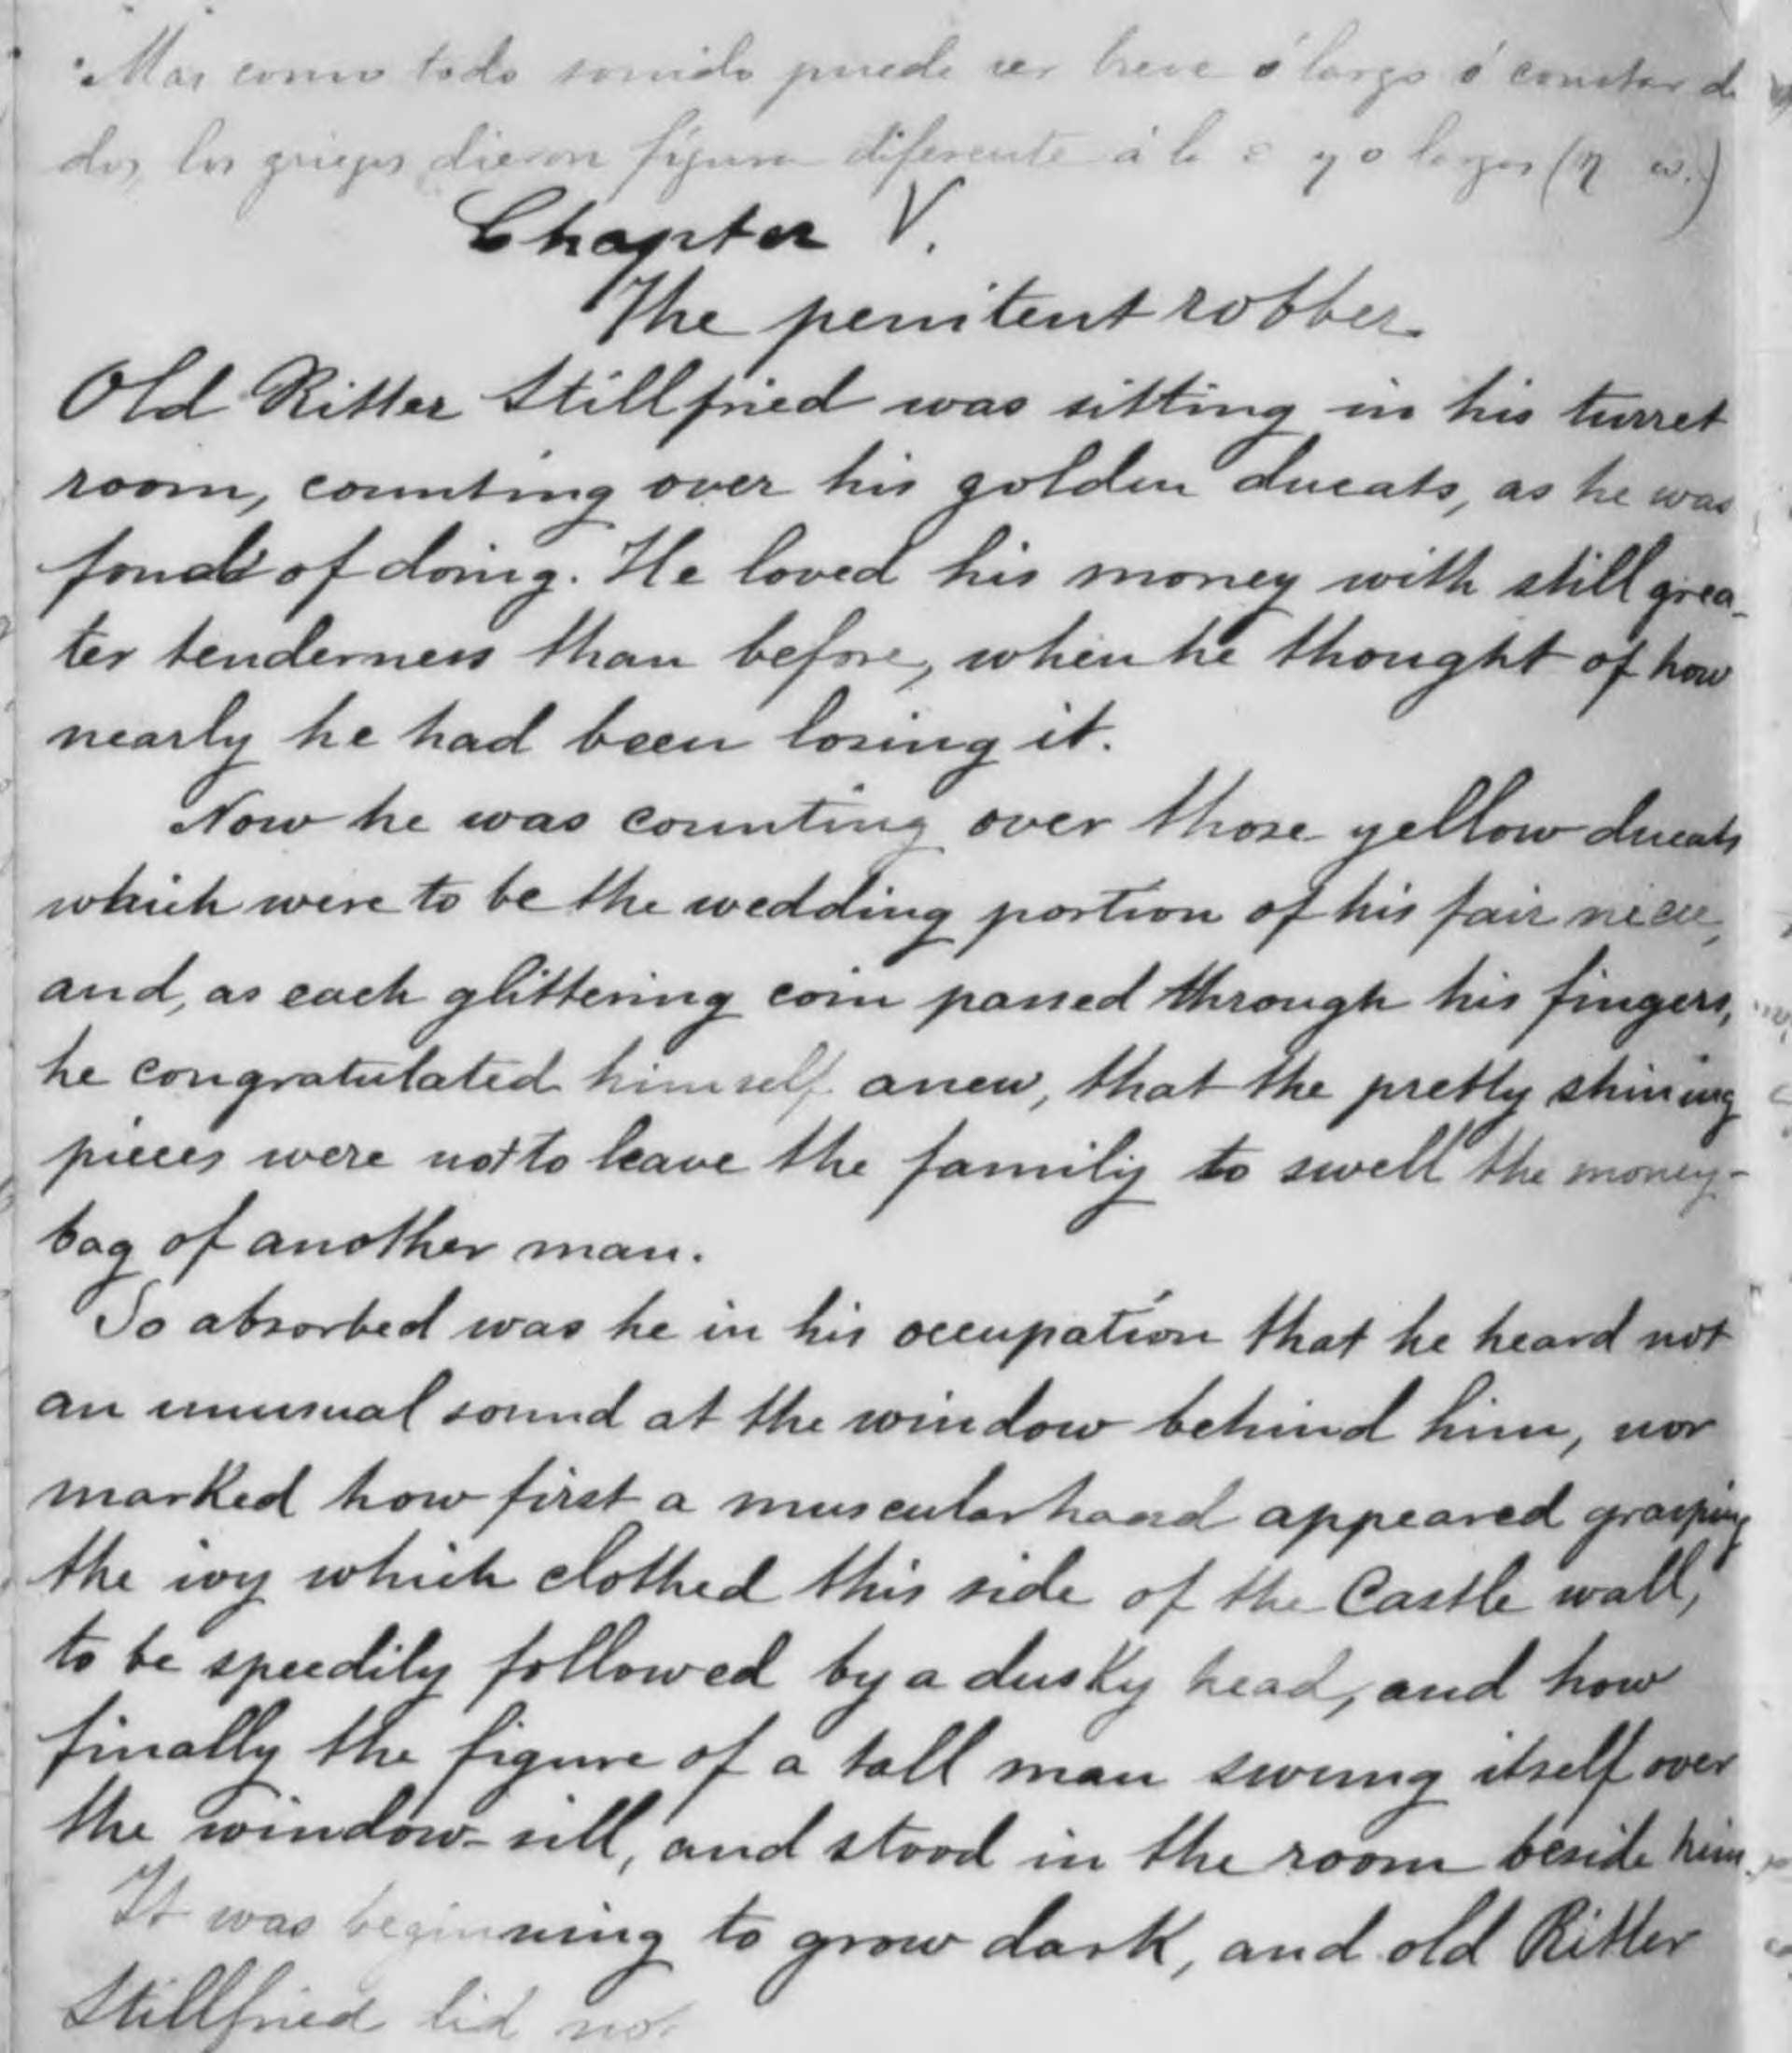 Mas como todo sonido puede ser breve ó largo ó constar de
dos, los griegos dieron figura diferente á la e y o largas (η ω.)
Chapter V.
The penitent robber.
Old Ritter Stillfried was sitting in his turret
room, counting over his golden ducats, as he was
fond of doing. He loved his money with still grea-
ter tenderness than before, when he thought of how
nearly he had been losing it.
Now he was counting over those yellow ducats
which were to be the wedding portion of his fair niece,
and, as each glittering coin passed through his fingers,
he congratulated himself anew, that the pretty shining
pieces were not to leave the family to swell the money-
bag of another man.
So absorbed was he in his occupation that he heard not
an unusual sound at the window behind him, nor
marked how first a muscular hand appeared grasping
the ivy which clothed this side of the Castle wall,
to be speedily followed by a dusky head, and how
finally the figure of a tall man swung itself over
the window-sill, and stood in the room beside him.
It was beginning to grow dark, and old Ritter
Stillfried did not